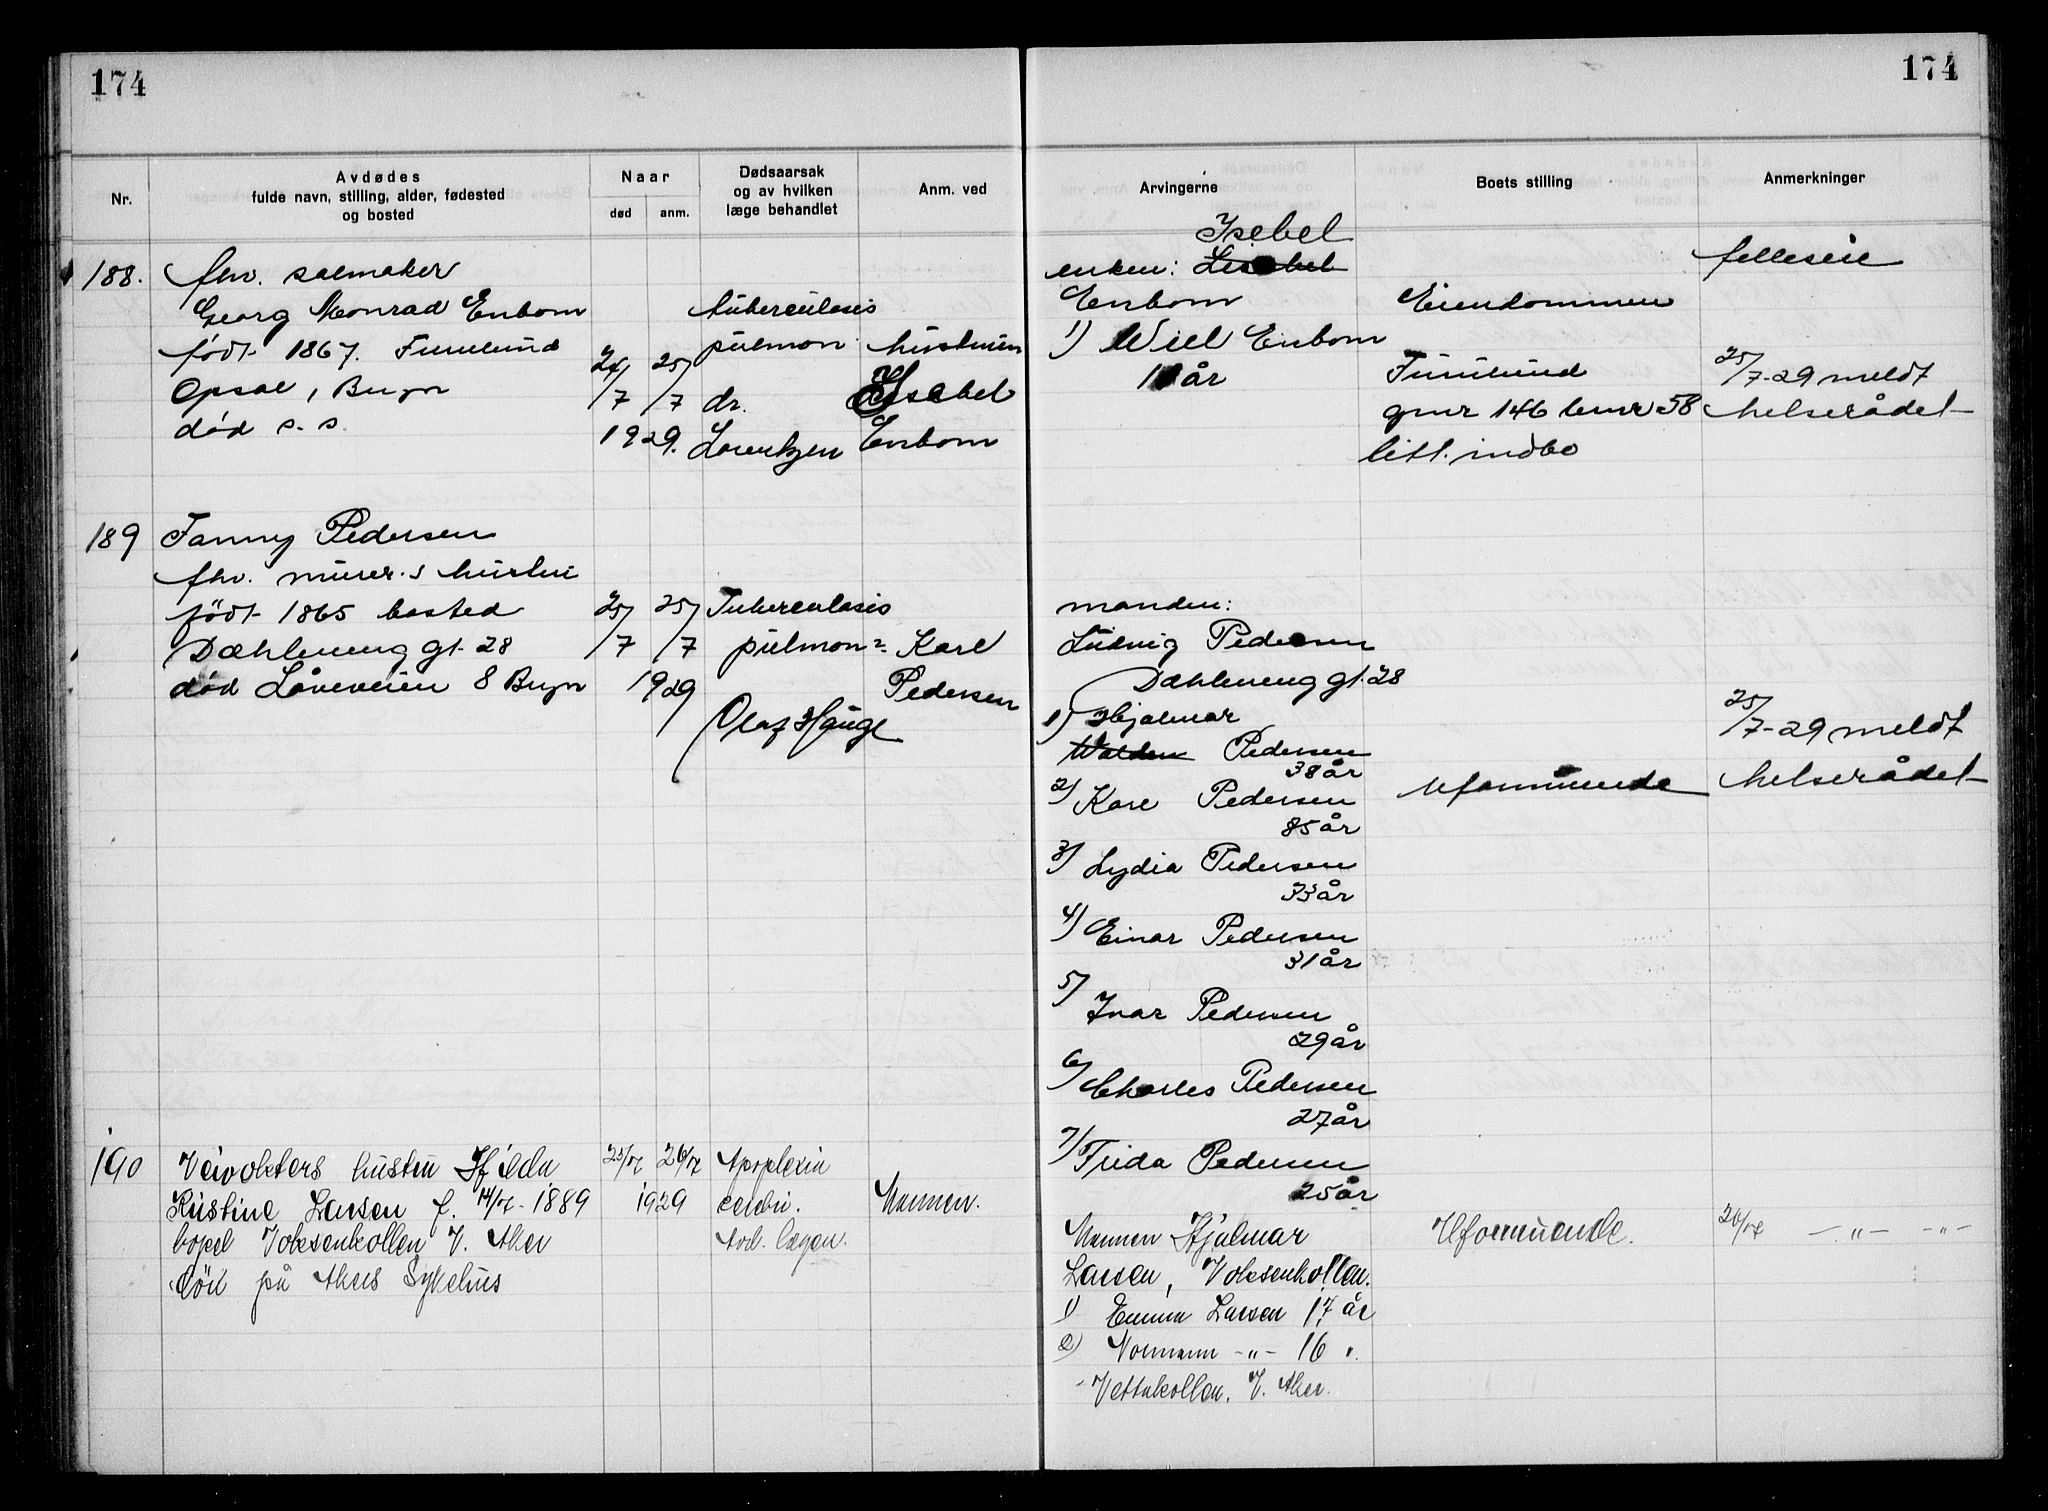 174
174
Nr.
Avdødes
fulde navn, stilling, alder, fødested
og bosted
Naar
død
anm.
Dødsaarsak
og av hvilken
læge behandlet
Anm. ved
Arvingerne
Boets stilling
Anmerkninger
188.
fhv. salmaker
Georg Monrad Enbom
født 1867. Furulund
Opsal, Bryn
død s. s.
24/7
25/7
1929.
tuberculosis
pulmon
dr.
Lorentzen
hustruen
Isebel
Enbom
Isebel
enken: Lisebel
Enbom
1) Will Enbom
år
Eiendommen
Furulund
gnr 146 bnr 58
litt. indbo
felleseie
25/7-29 meldt
helserådet
189
Fanny Pedersen
fhv. murer.s hustru
født 1865 bosted
Dæhleneng gt. 28
død Låveveien 8 Bryn
25/7
25/7
1929
Tuberculosis
pulmon
Olaf Hauge
Karl
Pedersen
manden:
Ludvig Pedersen
Dæhleneng gt. 28
1) Hjalmar
Walden Pedersen
38 år
2) Karl Pedersen
35 år
3) Lydia Pedersen
33 år
4) Einar Pedersen
31 år
5)
Ivar Pedersen
29 år
6) Charles Pedersen
27 år
7) Frida Pedersen
25 år
Uformuende
25/7-29 meldt
helserådet
190
Veivokters hustru Hilda
Kristine Larsen f. 14/7-1889
bopel Voksenkollen V. Aker
død på Akers Sykehus
25/7
26/7
1929
Apoplexia
cerebri.
Avd. lægen.
Mannen.
Mannen Hjalmar
Larsen, Voksenkollen.
1) Emma Larsen 17 år
2) Normann -"- 16 ".
Vettakollen, V. Aker.
Uformuende.
26/7 -"- -"-